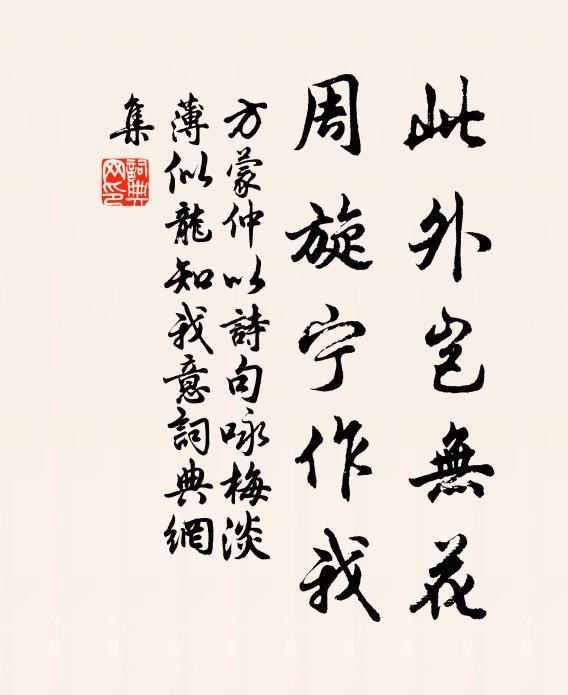 此外岂無花
周旋宁作我
方蒙仲以詩句咏梅淡
薄似龍知我意詞典網
集
詞典
网印